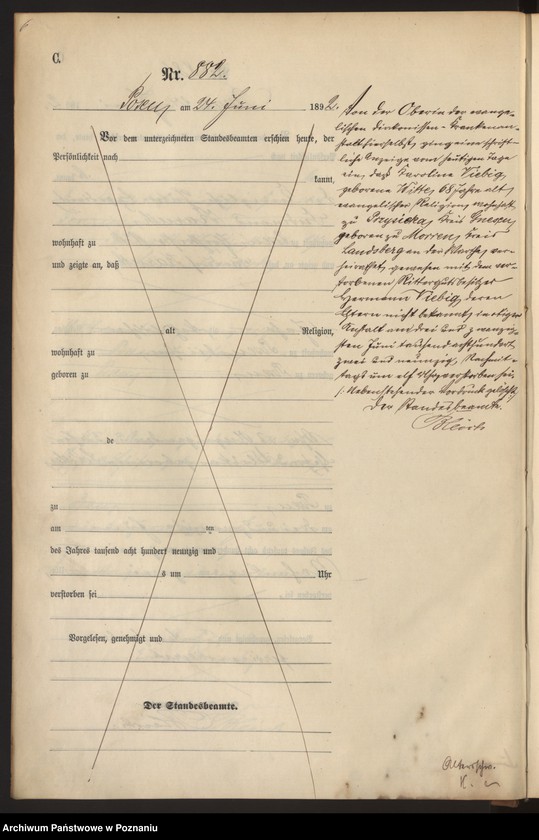 C.
Nr. 882.
Posen, am 24. Juni 1892.
Vor dem unterzeichneten Standesbeamten erschien heute, der
Persönlichkeit nach
kannt,
wohnhaft zu
und zeigte an, daß
alt Religion,
wohnhaft zu
geboren zu
de
zu
am ten
des Jahres tausend acht hundert neunzig und
s um Uhr
verstorben sei
Vorgelesen, genehmigt und
Der Standesbeamte.
Von der Oberin der evange-
lischen Diakonissen-Krankenan-
stalt hierselbst ging eine schrift-
liche Anzeige vom heutigen Tage
ein, daß Karoline Viebig,
geborene Witte, 68 Jahre alt,
evangelischer Religion, wohnhaft
zu Kreis Gnesen,
geboren zu Morrn, Kreis
Landsberg an der Warthe, ver-
heirathet gewesen mit dem ver-
storbenen Rittergutsbesitzer
Hermann Viebig, deren
Eltern nicht bekannt, in obiger
Anstalt am drei und zwanzig-
sten Juni tausend achthundert
zwei und neunzig, Nachmit-
tags um elf Uhr verstorben sei
/: Nebenstehender Vordruck gelöscht.
Der Standesbeamte.
K.
Archiwum Państwowe w Poznaniu